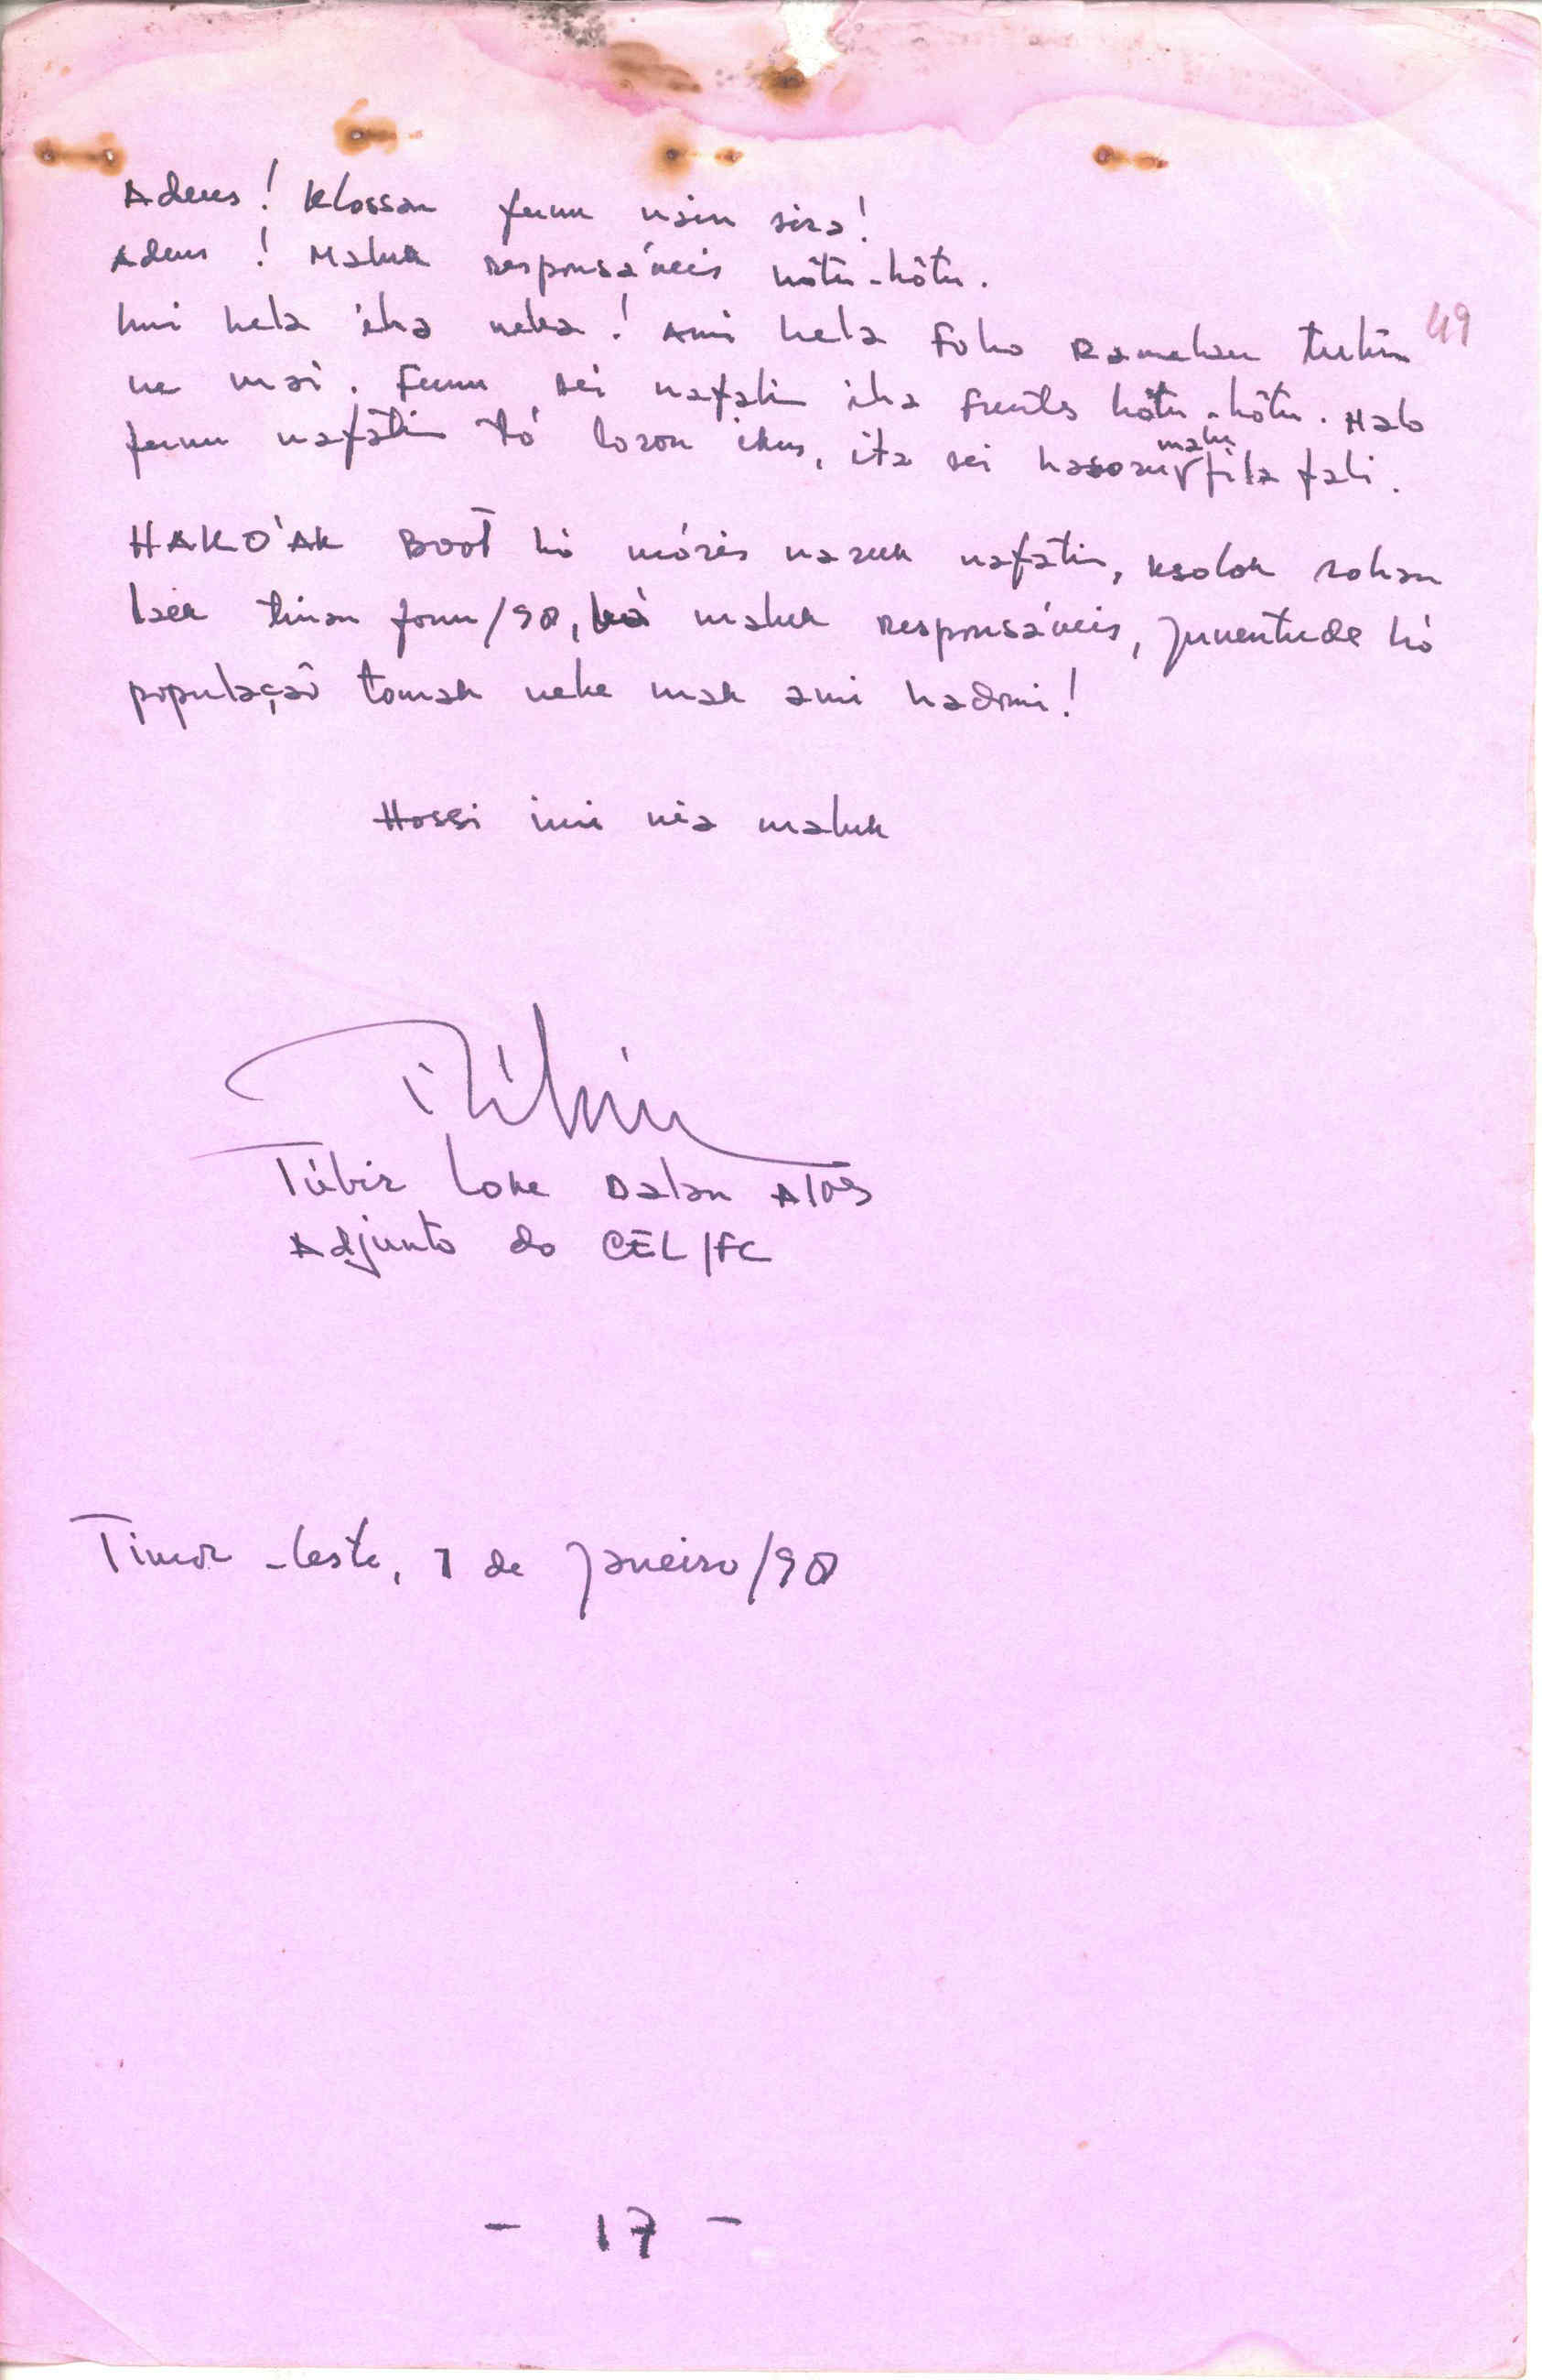 Adeus! Klossan funu nain sira!
Adeus! Maluk responsáveis hôtu-hôtu.
Imi hela iha neba! Ami hela Foho Ramelau tutun
49
ne mai. Funu sei nafatin iha Frentes hôtu-hôtu. Halo
funu nafatin tó loron ikus, ita sei hasoru malu fila fali.
HAKO'AK Boot hó móris naruk nafatin, ksolok rohan
laek tinan fonu/90, bá maluk responsáveis, juventude hó
população tomak nebe mak ami hadomi!
Hossi imi nia maluk
Túbir Loke Dalan Atos
Adjunto do CEL/FC
Timor-Leste, 1 de Janeiro/90
- 17 -